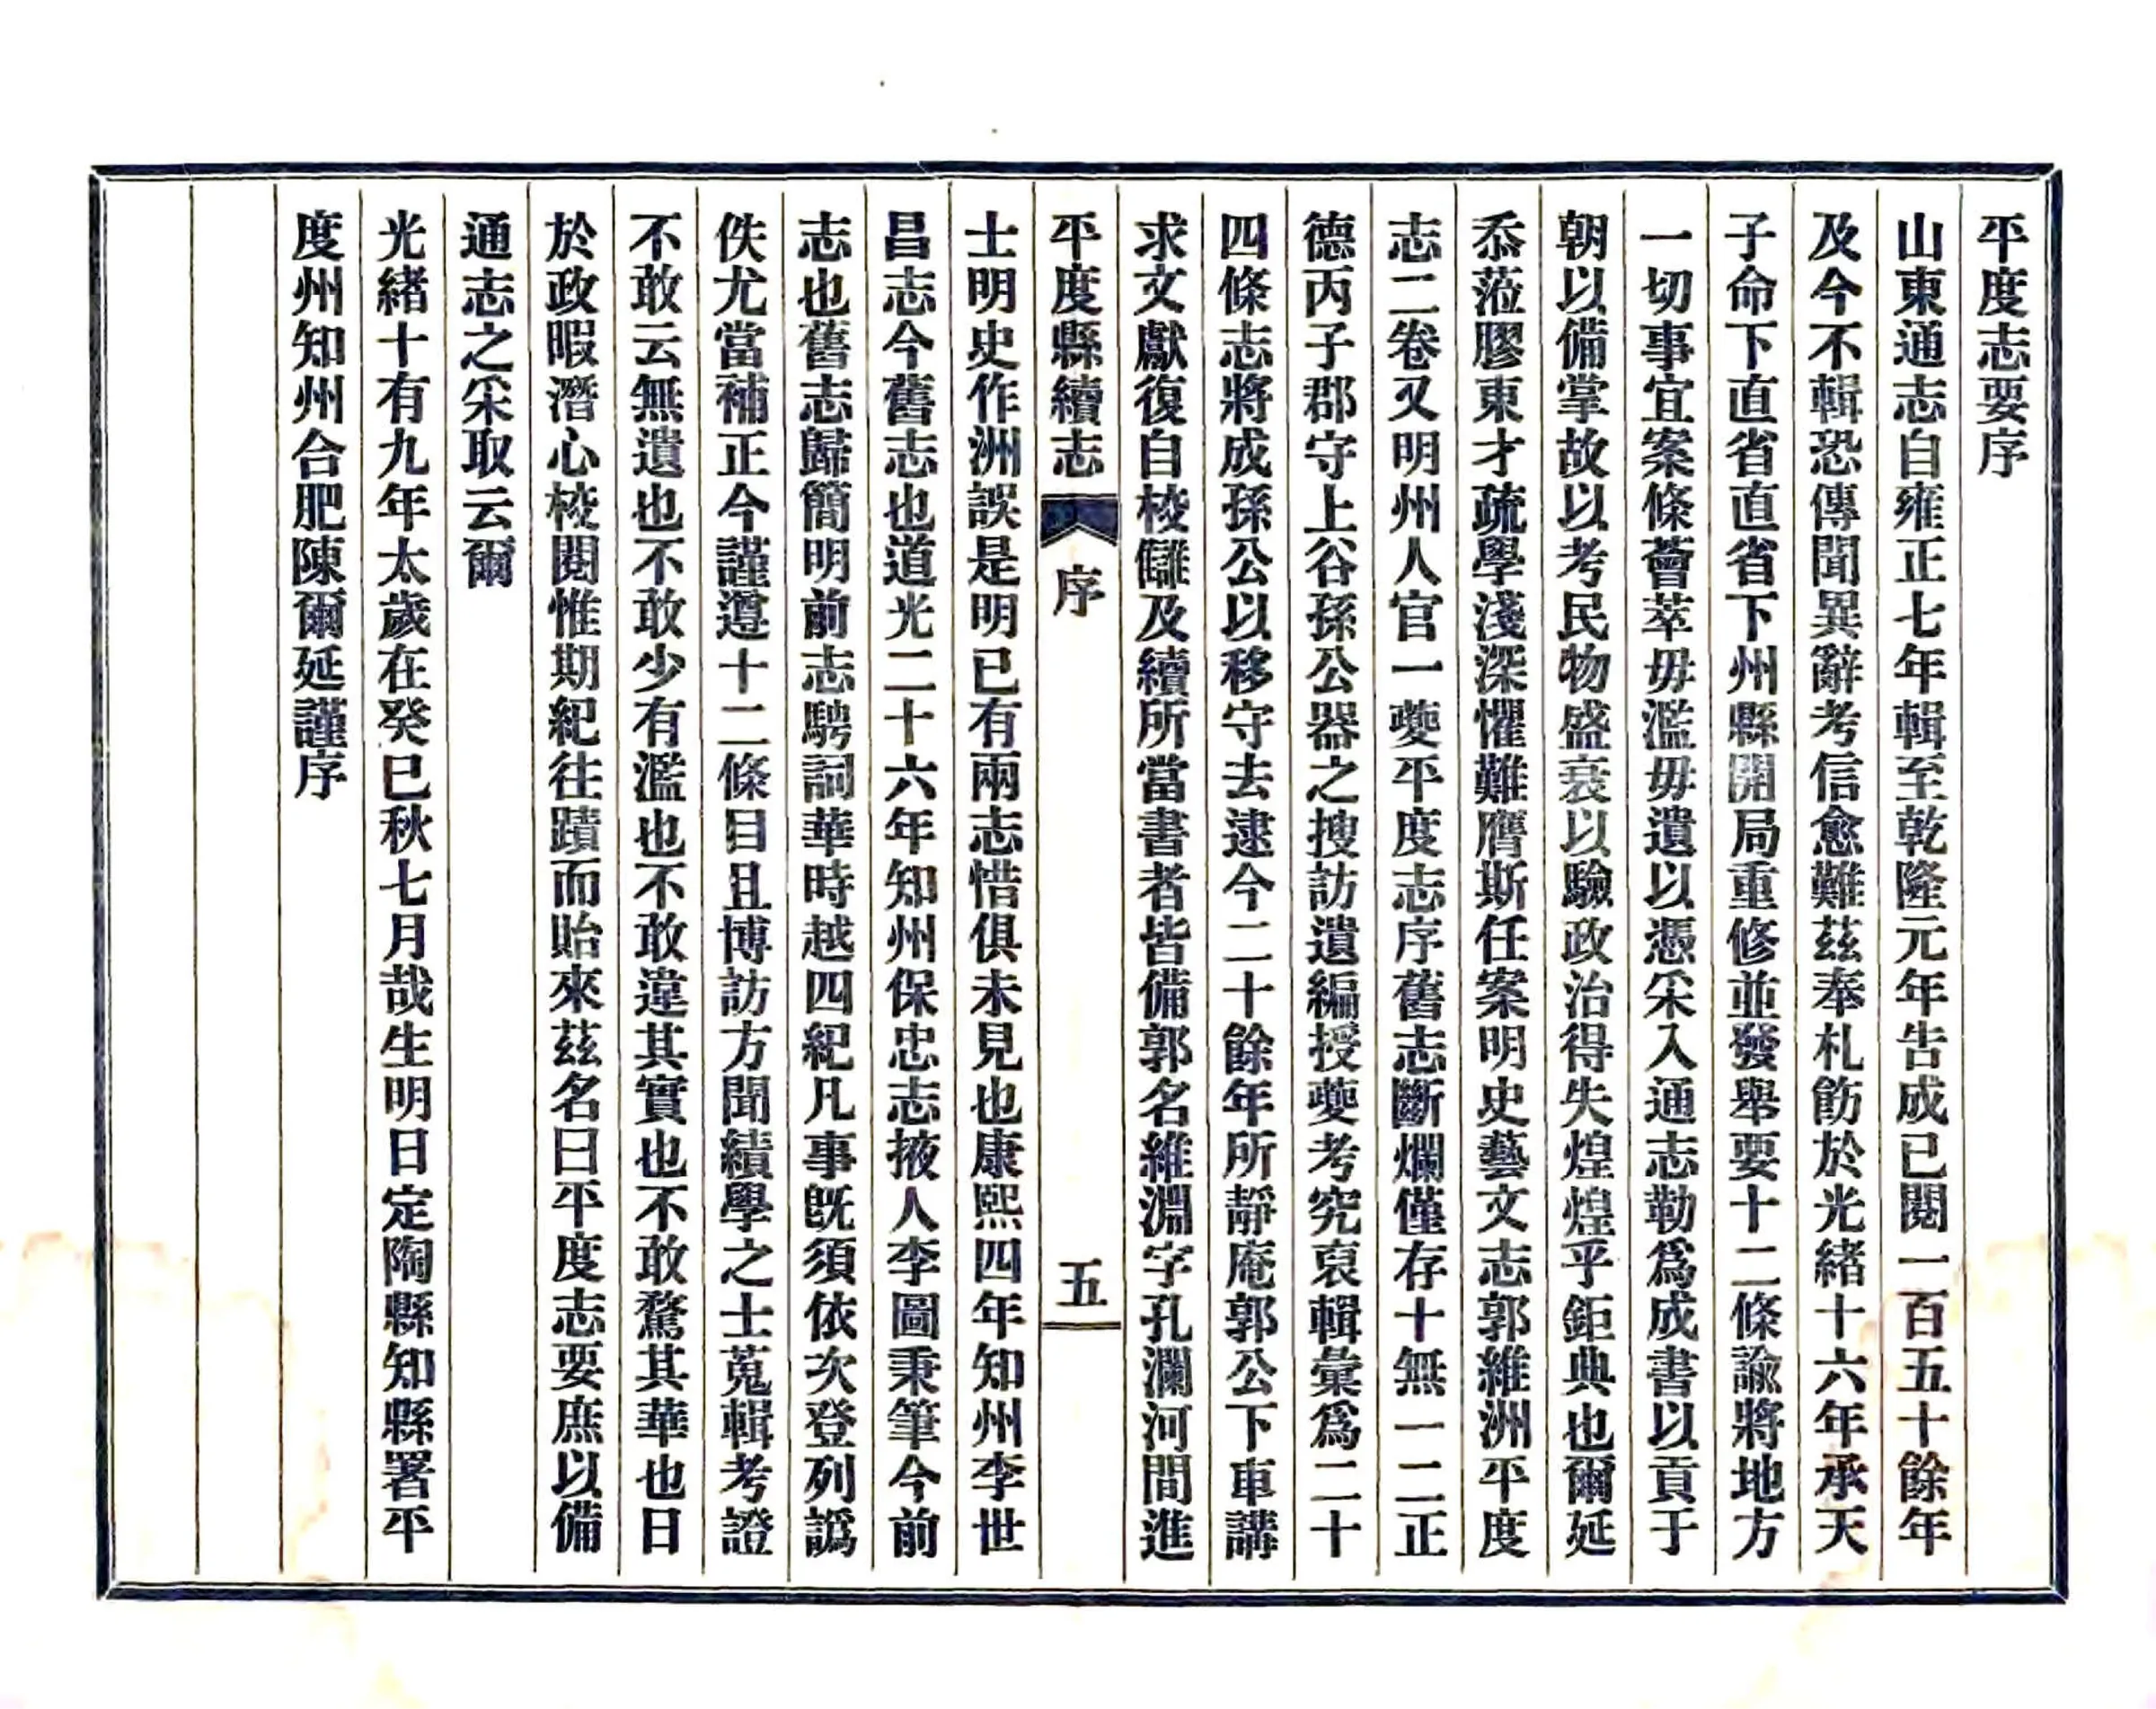 平度志要序
山東通志自雍正七年輯至乾隆元年告成已閱一百五十餘年
及今不輯恐傳聞異辭考信愈難茲奉札飭於光緒十六年承天
子命下直省直省下州縣開局重修並發舉要十二條諭將地方
一切事宜案條薈萃毋濫毋遺以憑采入通志勒爲成書以貢于
朝以備掌故以考民物盛衰以驗政治得失煌煌乎鉅典也爾延
忝蒞膠東才疏學淺深懼難膺斯任案明史藝文志郭維洲平度
志二卷又明州人官一夔平度志序舊志斷爛僅存十無一二正
德丙子郡守上谷孫公器之搜訪遺編授夔考究裒輯彙爲二十
四條志將成孫公以移守去逮今二十餘年所靜庵郭公下車講
求文獻復自校讎及續所當書者皆備郭名維淵字孔瀾河間進
平度縣續志 序 五
士明史作洲誤是明已有兩志惜俱未見也康熙四年知州李世
昌志今舊志也道光二十六年知州保忠志掖人李圖秉筆今前
志也舊志歸簡明前志騁詞華時越四紀凡事既須依次登列譌
佚尤當補正今謹遵十二條目且博訪方聞績學之士蒐輯考證
不敢云無遺也不敢少有濫也不敢違其實也不敢騖其華也日
於政暇潛心校閱惟期紀往蹟而貽來茲名曰平度志要庶以備
通志之采取云爾
光緒十有九年太歲在癸巳秋七月哉生明日定陶縣知縣署平
度州知州合肥陳爾延謹序